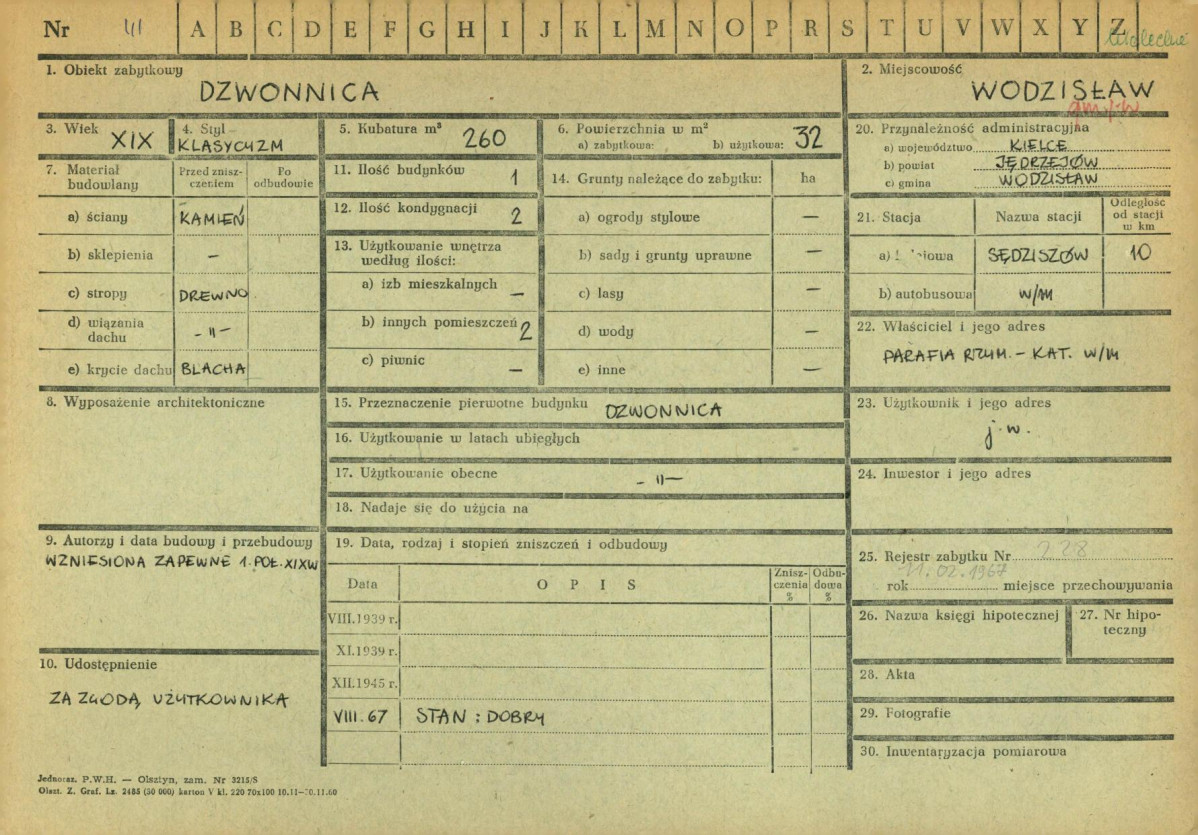 Nr III A B C D E F G H I J K L M N O P R S T U V W X Y Z
1. Obiekt zabytkowy
DZWONNICA
2. Miejscowość
WODZISŁAW
3. Wiek XIX
4. Styl
KLASYCYZM
5. Kubatura m³ 260
6. Powierzchnia w m²
a) zabytkowa: b) użytkowa: 32
20. Przynależność administracyjna
a) województwo KIELCE
b) powiat JĘDRZEJÓW
c) gmina WODZISŁAW
7. Materiał budowlany
Przed znisz-
czeniem
Po
odbudowie
a) ściany KAMIEŃ
b) sklepienia —
c) stropy DREWNO
d) wiązania
dachu - " -
e) krycie dachu BLACHA
11. Ilość budynków 1
12. Ilość kondygnacji 2
13. Użytkowanie wnętrza
według ilości:
a) izb mieszkalnych —
b) innych pomieszczeń 2
c) piwnic —
14. Grunty należące do zabytku: ha
a) ogrody stylowe —
b) sady i grunty uprawne —
c) lasy —
d) wody —
e) inne —
21. Stacja Nazwa stacji
Odległość
od stacji
w km
a) SĘDZISZÓW 10
b) autobusowa W/M
22. Właściciel i jego adres
PARAFIA RZYM. - KAT. W/M
8. Wyposażenie architektoniczne
15. Przeznaczenie pierwotne budynku DZWONNICA
16. Użytkowanie w latach ubiegłych
17. Użytkowanie obecne - " —
18. Nadaje się do użycia na
23. Użytkownik i jego adres
j.w.
24. Inwestor i jego adres
9. Autorzy i data budowy i przebudowy
WZNIESIONA ZAPEWNE 1. POŁ. XIXW
19. Data, rodzaj i stopień zniszczeń i odbudowy
Data O P I S
Znisz-
czenia
%
Odbu-
dowa
%
VIII.1939 r.
XI.1939 r.
XII.1945 r.
VIII.67 STAN : DOBRY
25. Rejestr zabytku Nr
11.02.1967
rok miejsce przechowywania
26. Nazwa księgi hipotecznej
27. Nr hipo-
teczny
10. Udostępnienie
ZA ZGODĄ UŻYTKOWNIKA
28. Akta
29. Fotografie
30. Inwentaryzacja pomiarowa
Jednorаz. P.W.H. — Olsztyn, zam. Nr 3215/S
Olszt. Z. Graf. Lz. 2485 (50 000) karton V kl. 220 70x100